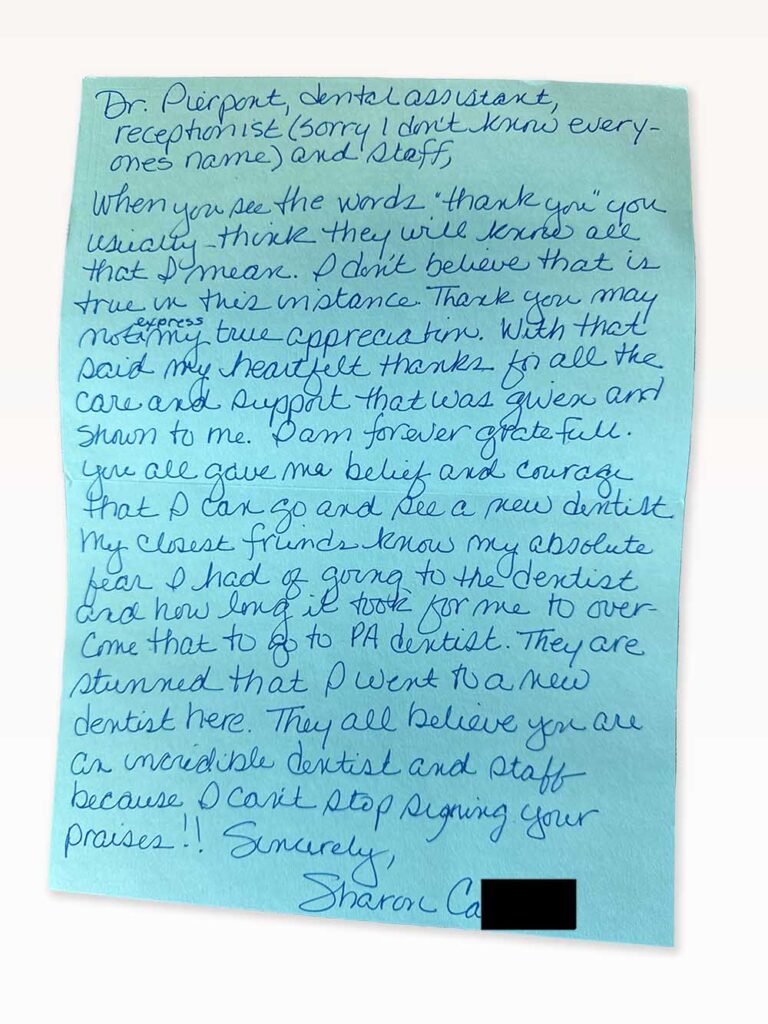 Dr. Pierpont, dental assistant,
receptionist (sorry I don't know every-
ones name) and staff,
When you see the words "thank you" you
usually think they will know all
that I mean. I don't believe that is
true in this instance. Thank you may
not express my true appreciation. With that
said my heartfelt thanks for all the
care and support that was given and
shown to me. I am forever gratefull.
You all gave me belief and courage
that I can go and see a new dentist.
My closest friends know my absolute
fear I had of going to the dentist
and how long it took for me to over-
come that to go to PA dentist. They are
stunned that I went to a new
dentist here. They all believe you are
an incredible dentist and staff
because I can't stop signing your
praises!! Sincerely,
Sharon Ca